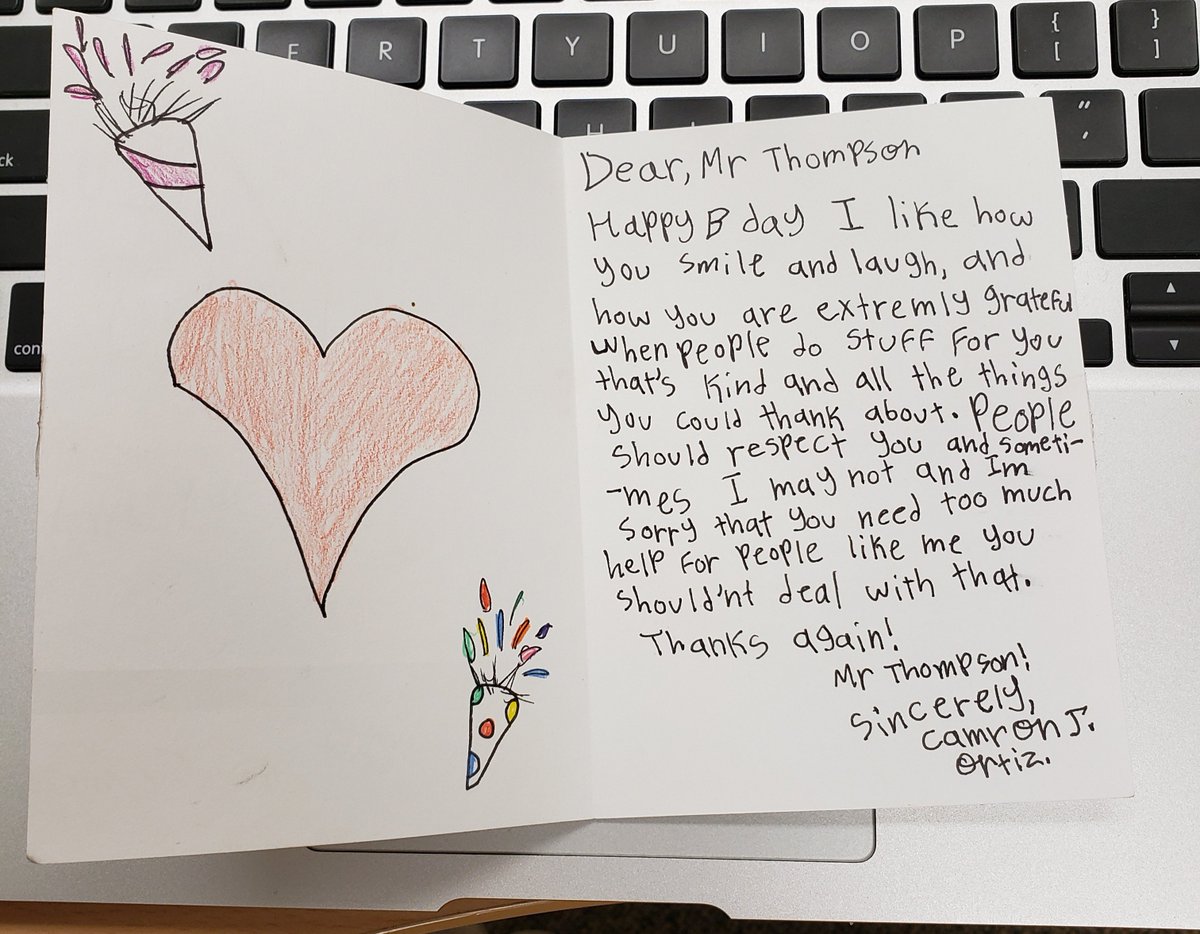 E R T Y U I O P { [ } ]
H
" '
ck
con
▲
▼
Dear, Mr Thompson
Happy B day I like how
you smile and laugh, and
how you are extremly grateful
when people do stuff for you
that's kind and all the things
you could thank about. People
should respect you and someti-
-mes I may not and Im
sorry that you need too much
help for people like me you
should'nt deal with that.
Thanks again!
Mr Thompson!
Sincerely,
Camron J.
Ortiz.